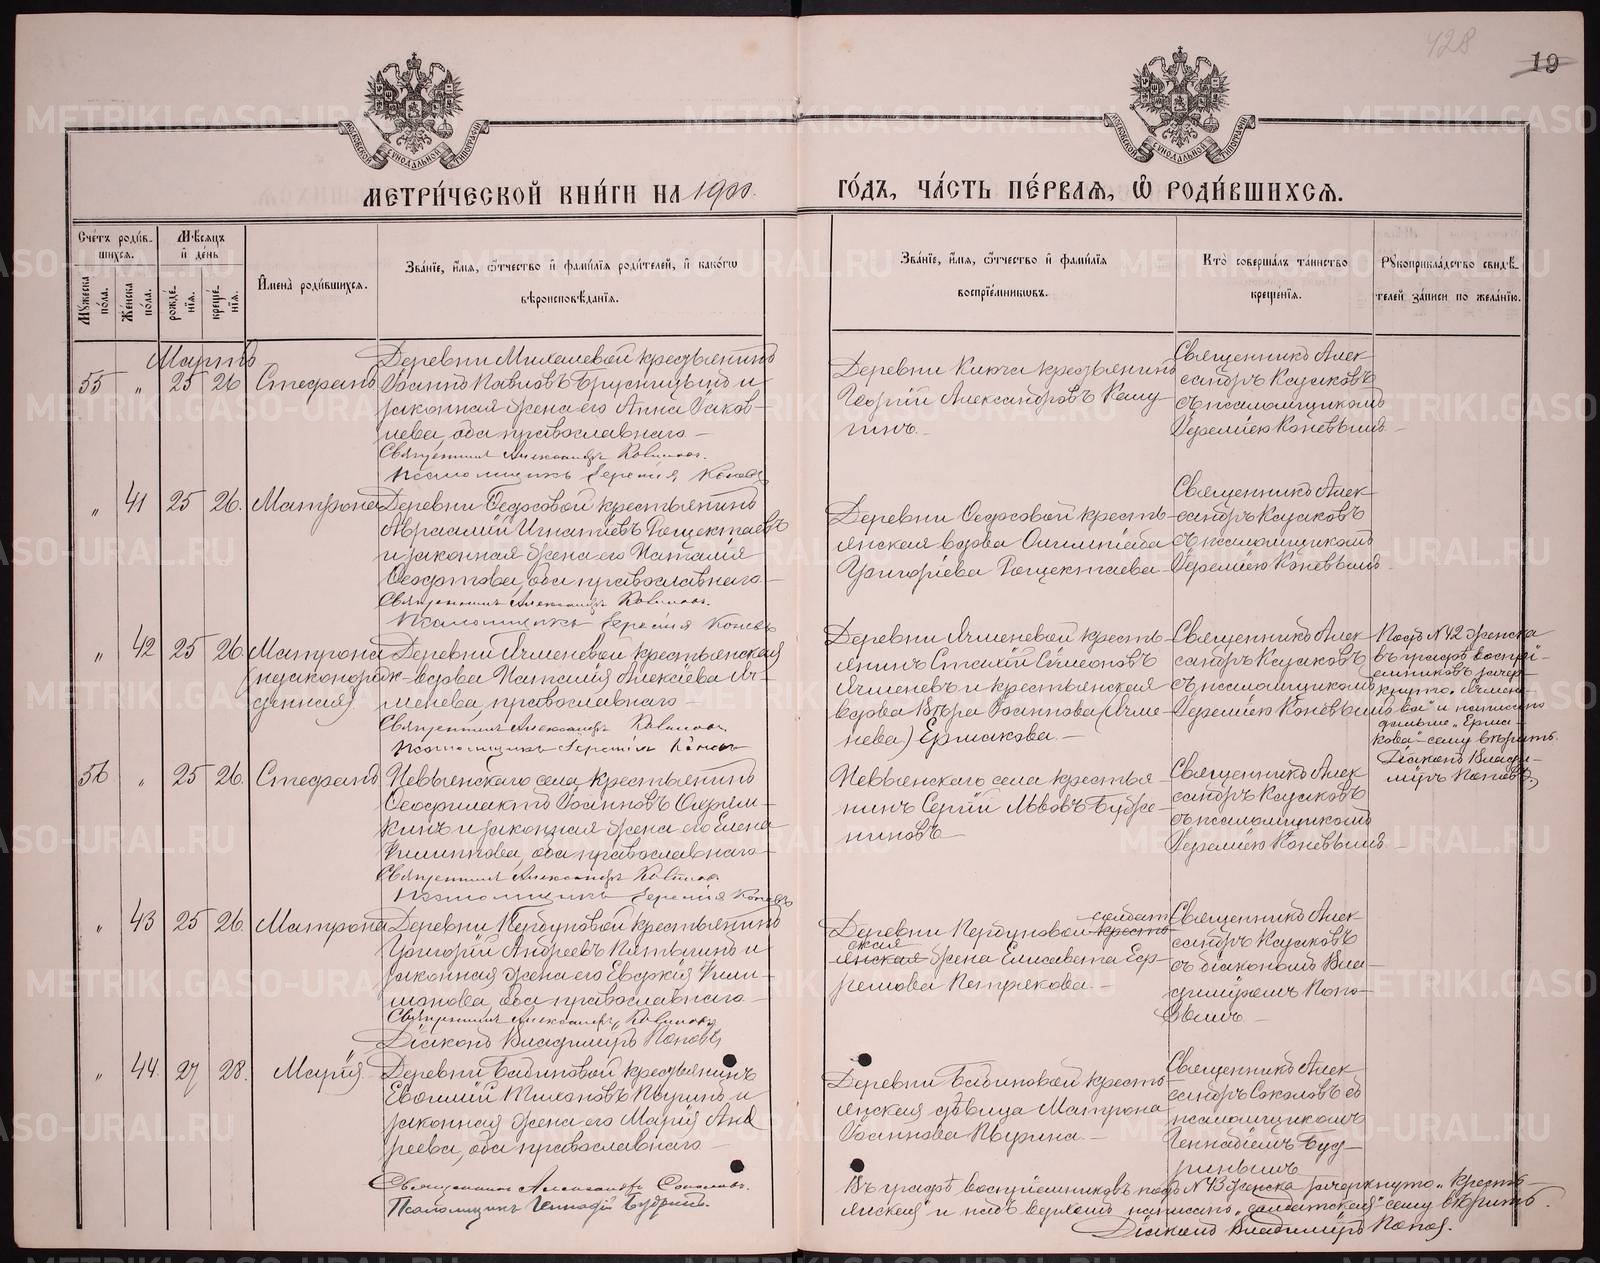 428
19
МЕТРИ́ЧЕСКОЙ КНИ́ГИ НА 1900. ГО́ДЪ, ЧА́СТЬ ПЕ́РВАѦ, Ѽ РОДИ́ВШИХСѦ.
Сче́тъ роди́в-
шихсѧ.
Мужеска по́ла.
Же́нска по́ла.
Мѣ́сѧцъ
и҆ де́нь
рожде́-нїѧ.
креще́-нїѧ.
И҆мена̀ роди́вшихсѧ.
Зва́нїе, и҆́мѧ, ѻ҆́тчество и҆ фами́лїѧ роди́телей, и҆ како́гѡ
вѣроисповѣ́данїѧ.
Зва́нїе, и҆́мѧ, ѻ҆́тчество и҆ фами́лїѧ
воспрїе́мникѡвъ.
Кто̀ соверша́лъ та́инство
креще́нїѧ.
Рукоприкла́дство свидѣ́-
телей за́писи по жела́нїю.
Мартъ
55 " 25 26 Стефанъ
Деревни Михалевой крестьянинъ
Іоаннъ Павловъ Брусницынъ и
законная жена его Анна Іаков-
лева, оба православнаго.
Священникъ Александръ
Псаломщикъ Іеремія Коневъ
Деревни Ключа крестьянинъ
Георгій Александровъ
Священникъ Алек-
сандръ
съ псаломщикомъ
Іереміею Коневымъ.
" 41 25 26. Матрона
Деревни Ѳедосовой крестьянинъ
Авраамій Игнатіевъ
и законная жена его Наталія
оба православнаго.
Священникъ Александръ
Псаломщикъ Іеремія Коневъ
Деревни Ѳедосовой кресть-
янская вдова Олимпіада
Григоріева
Священникъ Алек-
сандръ
съ псаломщикомъ
Іереміею Коневымъ.
" 42 25 26. Матрона
(незаконорож-
денная)
Деревни Ячменевой крестьянская
вдова Наталія Алексіева Яч-
менева, православнаго.
Священникъ Александръ
Псаломщикъ Іеремія Коневъ
Деревни Ячменевой кресть-
янинъ Симеоновъ
Ячменевъ и крестьянская
вдова Вѣра Іоаннова (Ячме-
нева) Ермакова.
Священникъ Алек-
сандръ
съ псаломщикомъ
Іереміею Коневымъ
Подъ № 42 женска
въ графѣ воспрі-
емниковъ зачер-
кнуто "Ячмен-
ева" и написано
дальше "Ерма-
кова" сему вѣрить.
Діаконъ Влади-
міръ Поповъ.
56 " 25 26. Стефанъ
Невьянскаго села крестьянинъ
Ѳеофилактъ Іоанновъ
и законная жена его Елена
оба православнаго
Священникъ Александръ
Псаломщикъ Іеремія Коневъ
Невьянскаго села крестья
нинъ Сергій Львовъ
Священникъ Алек
сандръ
съ псаломщикомъ
Іереміею Коневымъ.
" 43 25 26. Матрона
Деревни крестьянинъ
Григорій Андреевъ и
законная жена его Евдокія
оба православнаго.
Священникъ Александръ
Діаконъ Владиміръ Поповъ
солдат
Деревни кресть-
ская
янская жена Елисавета Еф-
ремова Петрякова.
Священникъ Алек-
сандръ
съ діакономъ Вла-
диміромъ Попо-
вымъ
" 44. 27 28. Марія
Деревни Бабиновой крестьянинъ
Евѳимій Тихоновъ и
законная жена его Марія Анд
реева, оба православнаго
Священникъ Александръ Соколовъ.
Псаломщикъ Геннадій Будринъ.
Деревни Бабиновой кресть-
янская дѣвица Матрона
Іоаннова
Священникъ Алек-
сандръ Соколовъ съ
псаломщикомъ
Геннадіемъ Буд-
ринымъ
Въ графѣ воспріемниковъ подъ № 43 женска зачеркнуто "кресть-
янская" и надъ верхомъ написано "солдатская" сему вѣрить.
Діаконъ Владиміръ Поповъ.